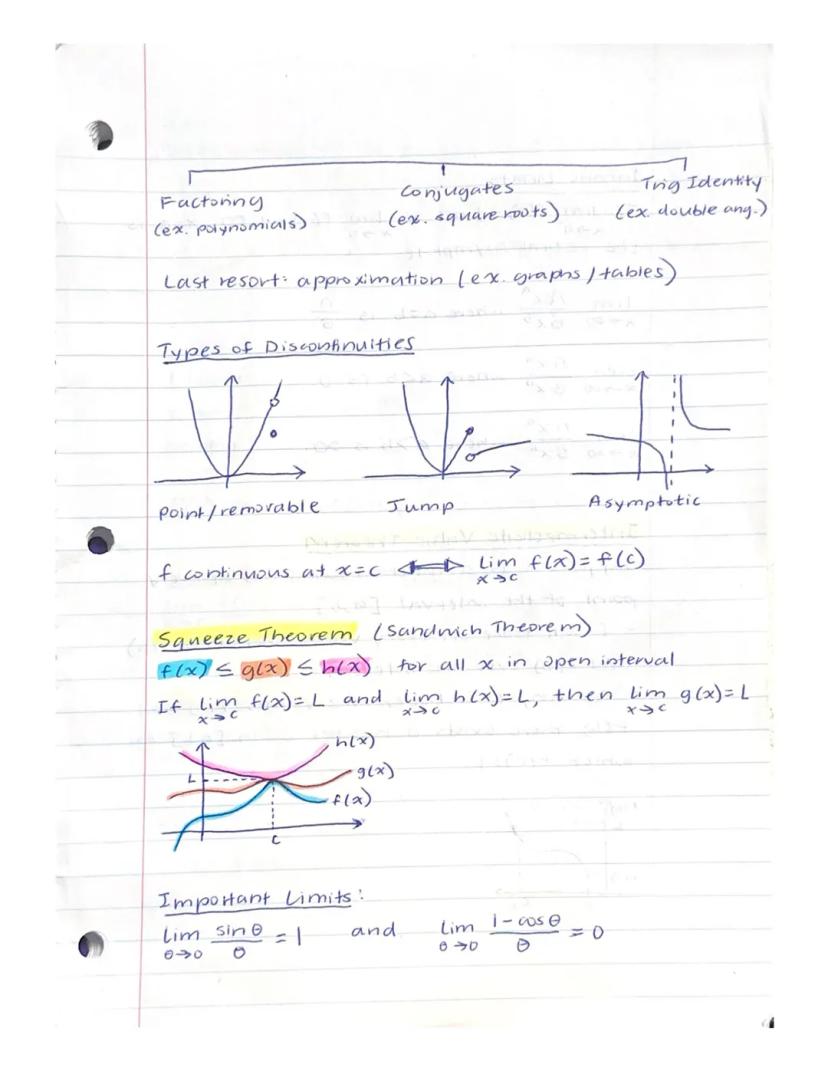 Factoring Conjugates Trig Identity
(ex. polynomials) (ex. square roots) (ex. double ang.)
Last resort: approximation (ex. graphs / tables)
Types of Discontinuities
Point/removable Jump Asymptotic
f continuous at x=c ⟺ lim x→c f(x) = f(c)
Squeeze Theorem (Sandwich Theorem)
f(x) ≤ g(x) ≤ h(x) for all x in open interval
If lim x→c f(x) = L and lim x→c h(x) = L, then lim x→c g(x) = L
h(x)
L g(x)
f(x)
c
Important Limits:
lim θ→0 sin θ / θ = 1 and lim θ→0 1 - cos θ / θ = 0